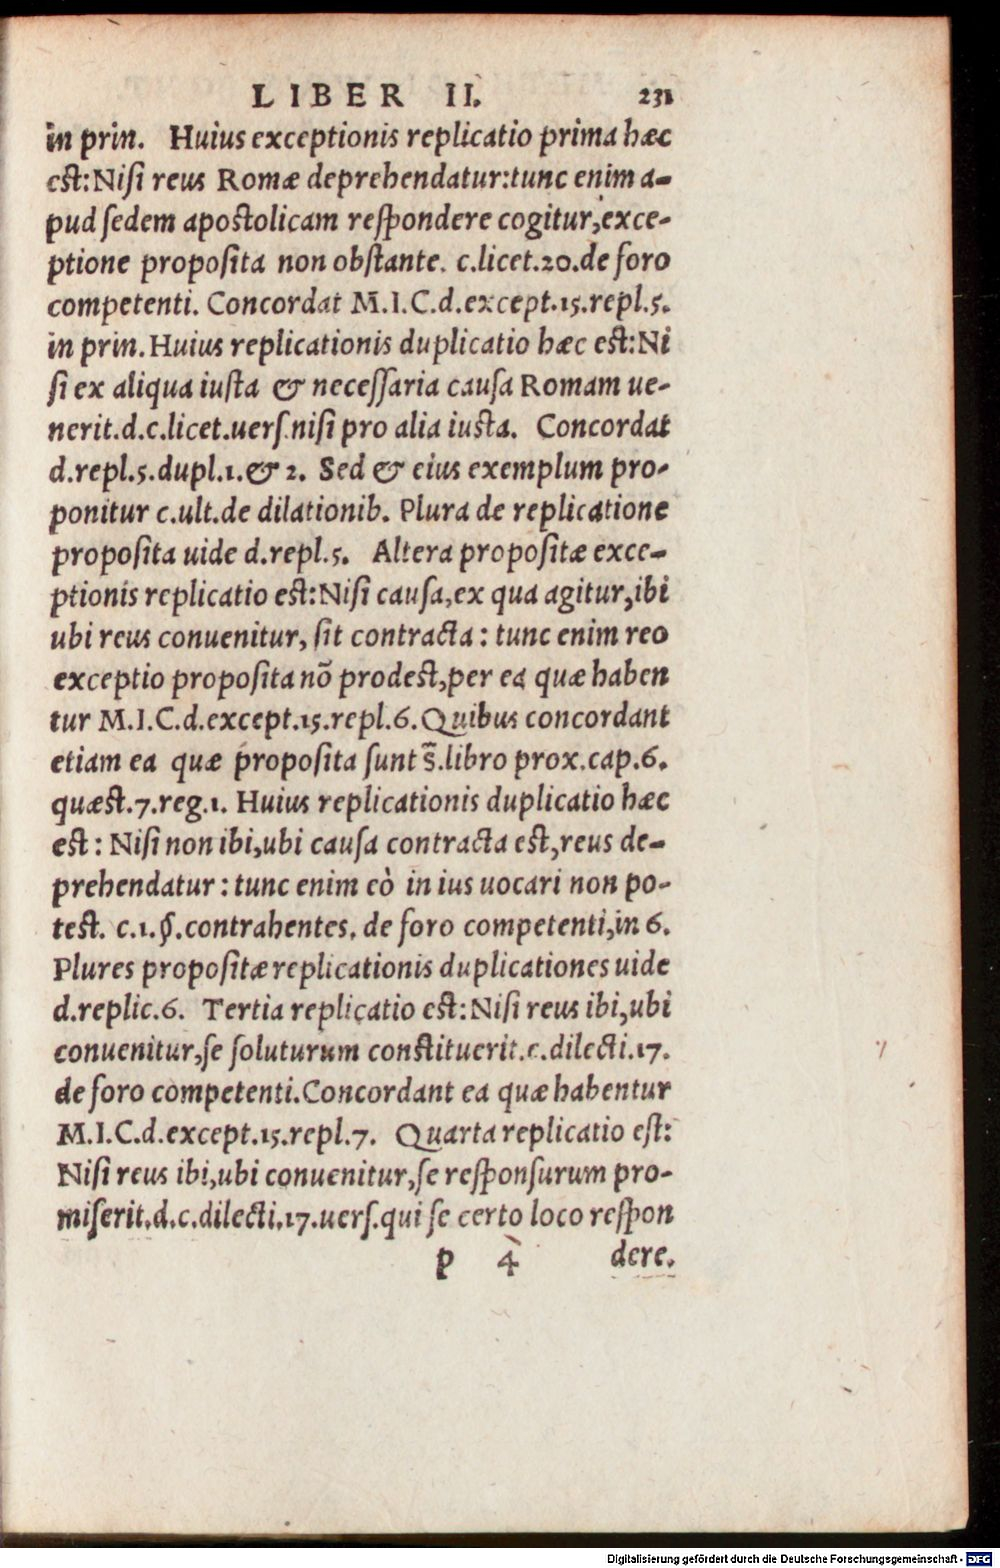 LIBER II. 231
in prin. Huius exceptionis replicatio prima hæc
est: Nisi reus Romæ deprehendatur: tunc enim a-
pud sedem apostolicam respondere cogitur, exce-
ptione proposita non obstante. c. licet. 20. de foro
competenti. Concordat M.I.C.d. except. 15. repl. 5.
in prin. Huius replicationis duplicatio hæc est: Ni
si ex aliqua iusta & necessaria causa Romam ue-
nerit. d. c. licet. uers. nisi pro alia iusta. Concordat
d. repl. 5. dupl. 1. & 2. Sed & eius exemplum pro-
ponitur c. ult. de dilationib. Plura de replicatione
proposita uide d. repl. 5. Altera propositæ exce-
ptionis replicatio est: Nisi causa, ex qua agitur, ibi
ubi reus conuenitur, sit contracta: tunc enim reo
exceptio proposita nō prodest, per ea quæ haben
tur M.I.C.d. except. 15. repl. 6. Quibus concordant
etiam ea quæ proposita sunt s̄. libro prox. cap. 6.
quæst. 7. reg. 1. Huius replicationis duplicatio hæc
est: Nisi non ibi, ubi causa contracta est, reus de-
prehendatur: tunc enim eò in ius uocari non po-
test. c. 1. §. contrahentes. de foro competenti, in 6.
Plures propositæ replicationis duplicationes uide
d. replic. 6. Tertia replicatio est: Nisi reus ibi, ubi
conuenitur, se soluturum constituerit. c. dilecti. 17.
de foro competenti. Concordant ea quæ habentur
M.I.C.d. except. 15. repl. 7. Quarta replicatio est:
Nisi reus ibi, ubi conuenitur, se responsurum pro-
miserit. d. c. dilecti. 17. uers. qui se certo loco respon
p 4 dere.
Digitalisierung gefördert durch die Deutsche Forschungsgemeinschaft - DFG